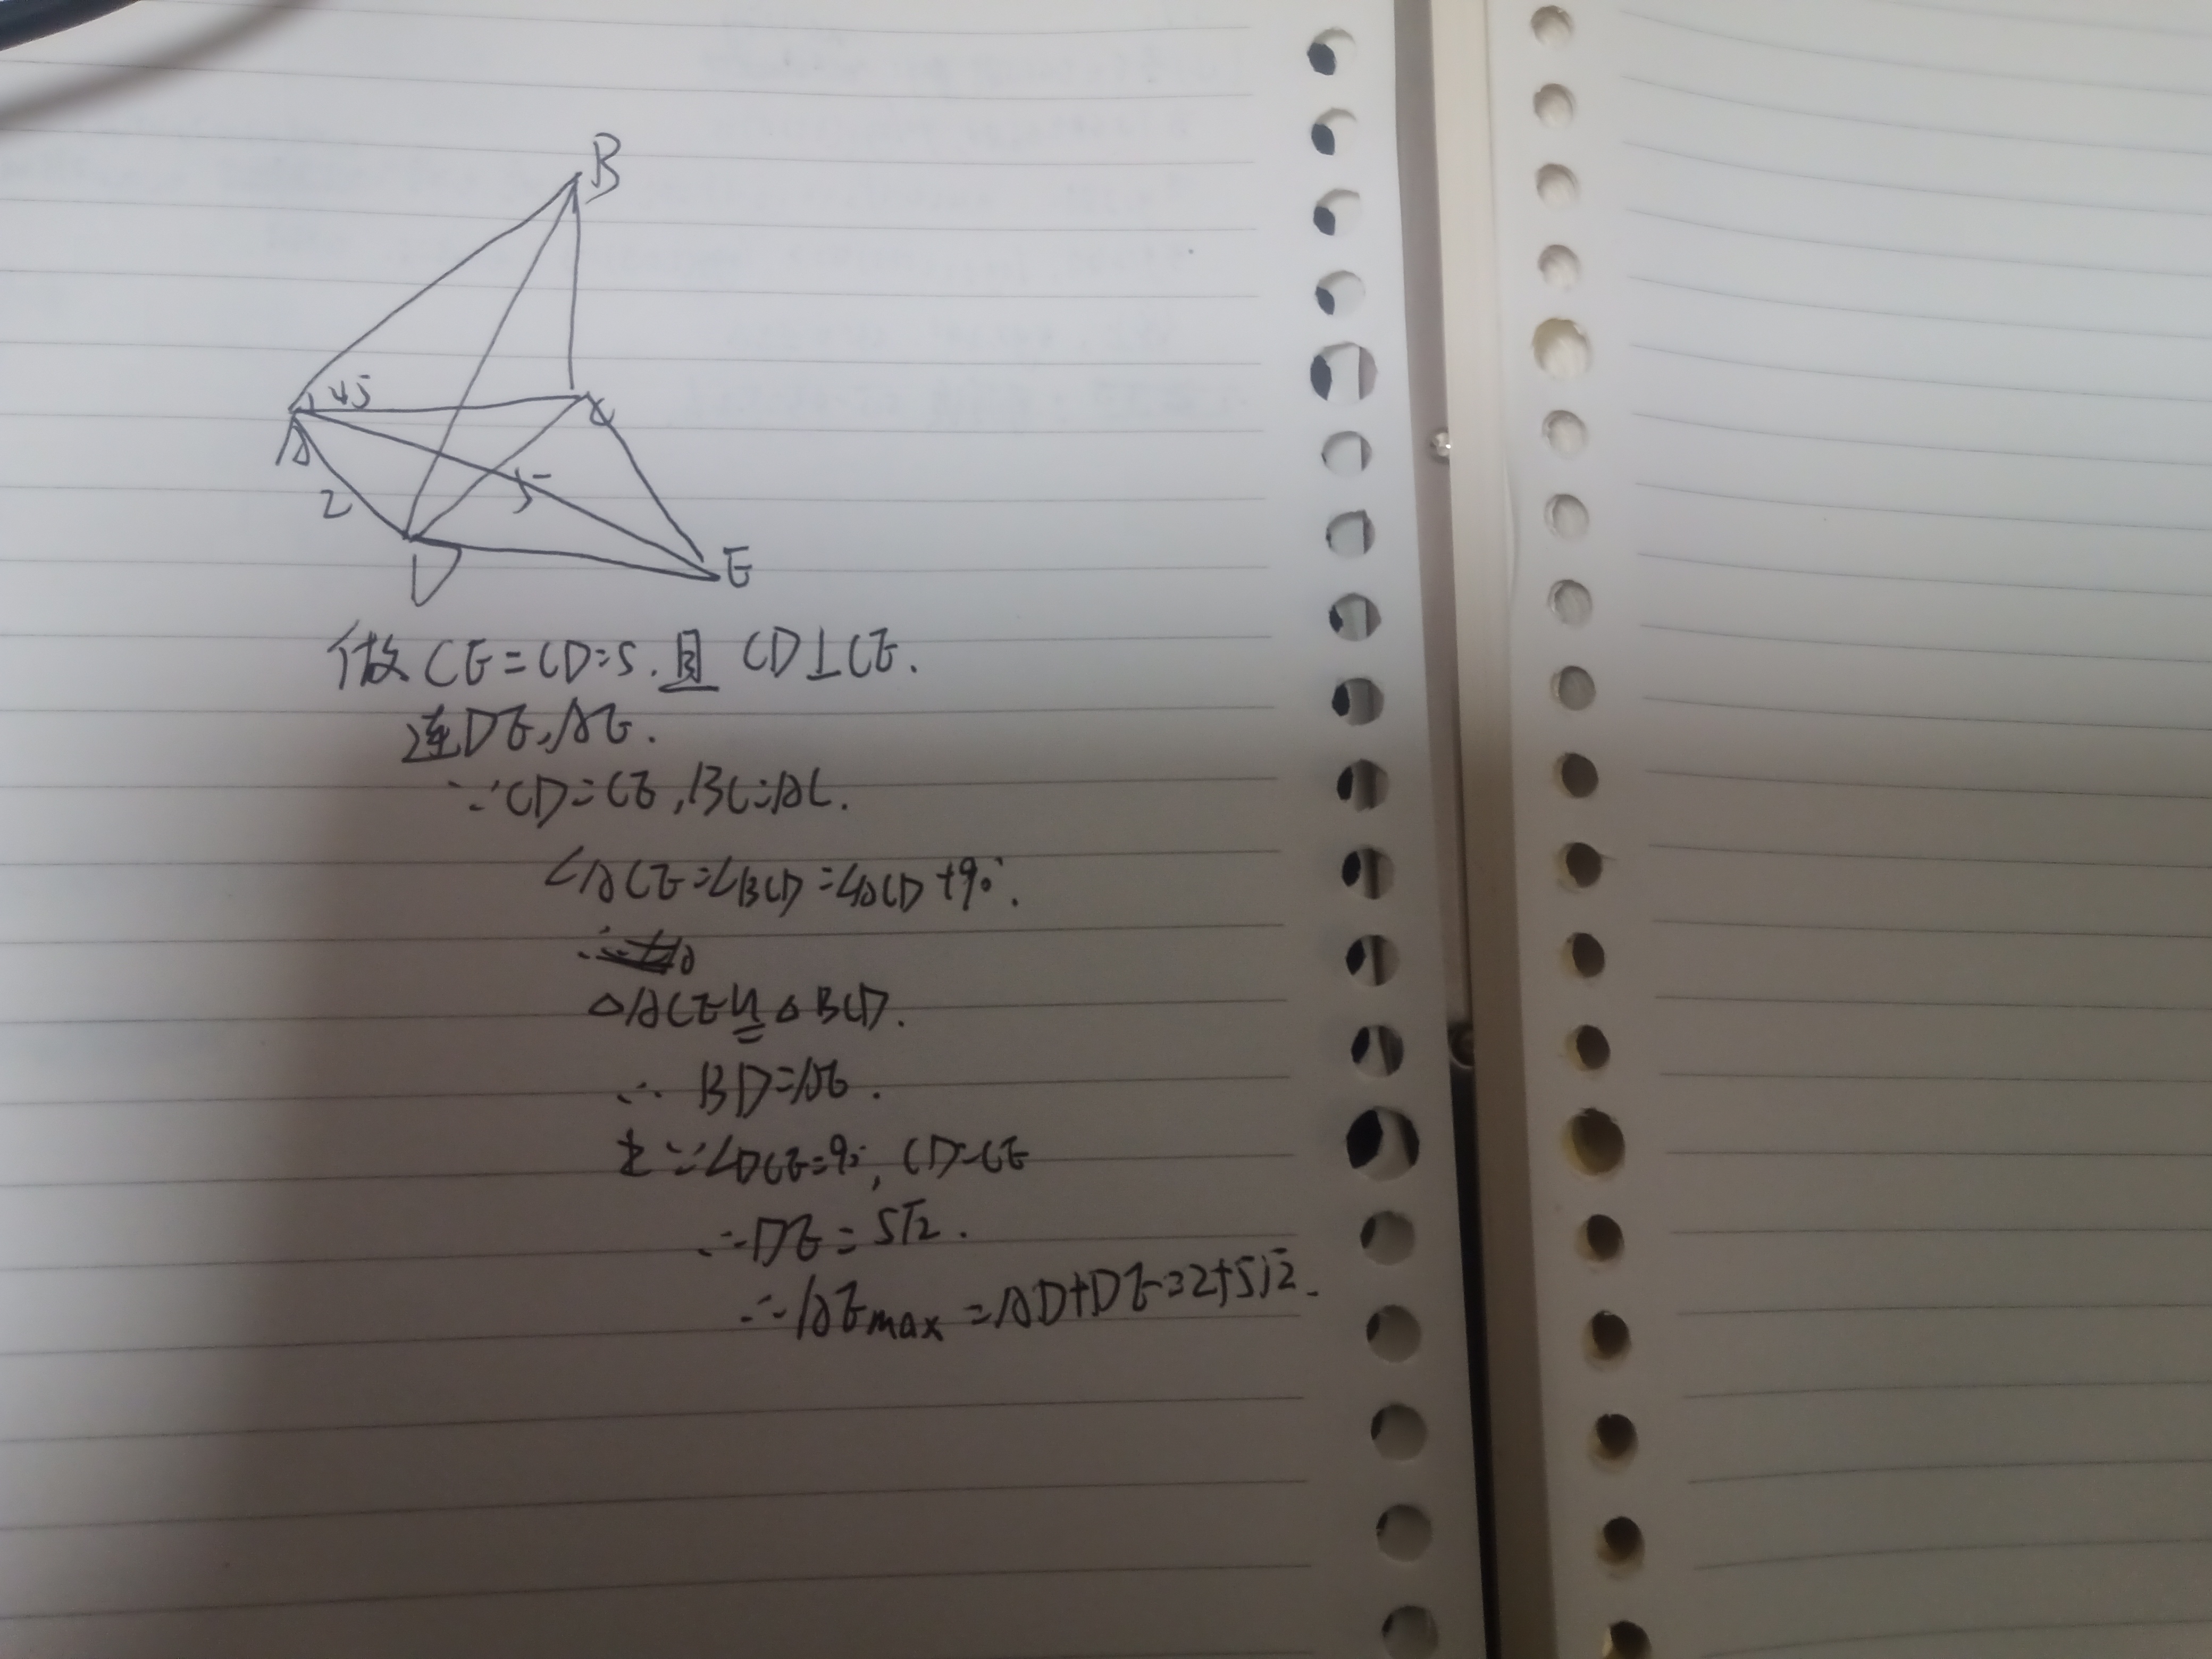 B
45
A
C
2
5
D
E
做CE=CD=5.且 CD⊥CE.
连DE,AE.
∵CD=CE,BC=AC.
∠ACE=∠BCD=∠ACD+90°.
∴
△ACE≌△BCD.
∴ BD=AE.
∵∠DCE=90°, CD=CE
∴DE=5√2.
∴AEmax=AD+DE=2+5√2.